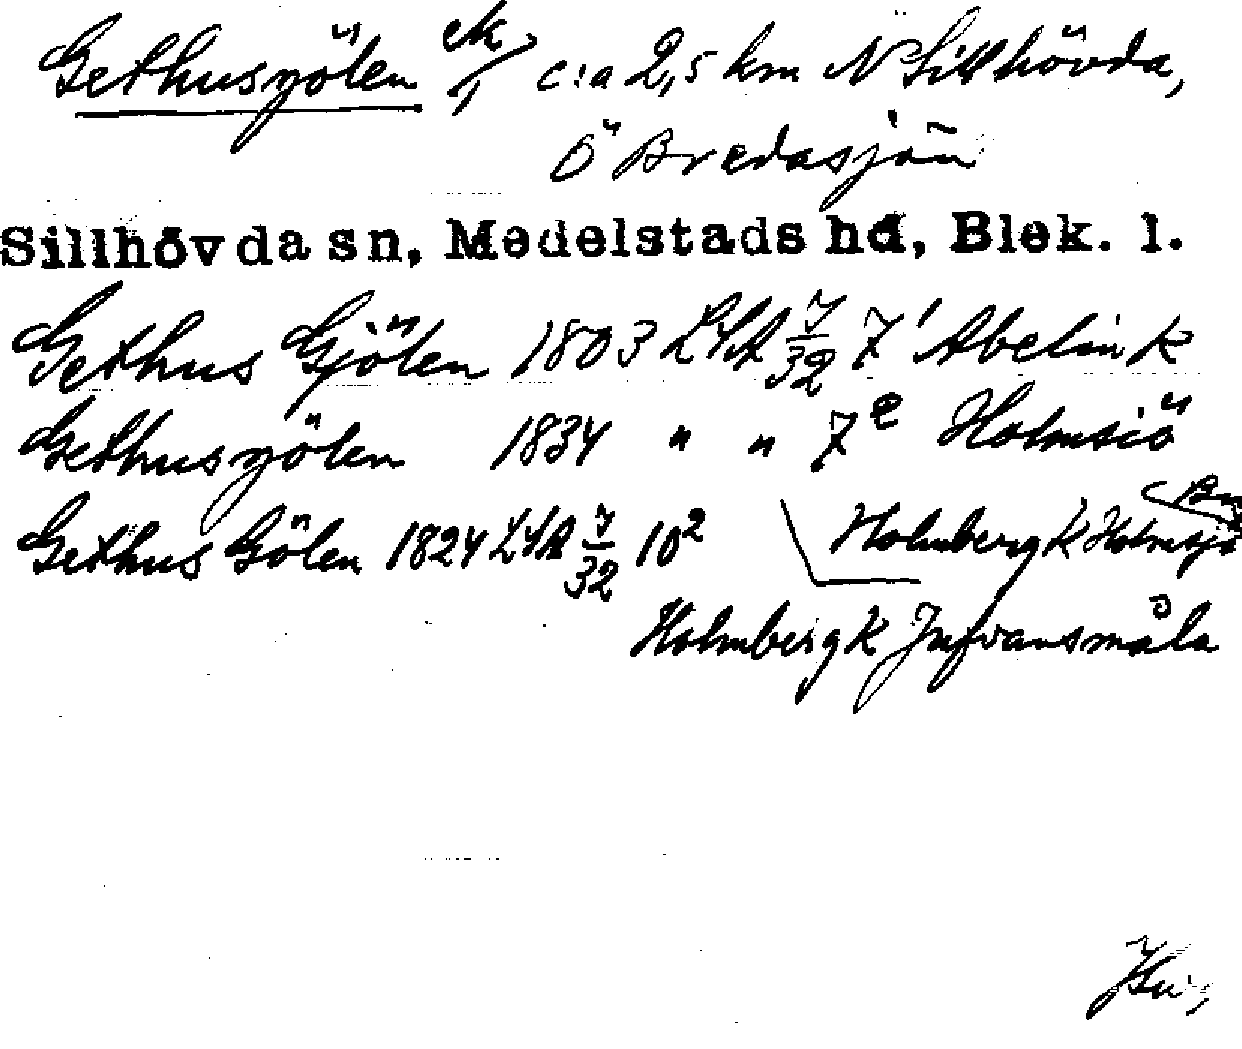 Gethusgölen ek c:a 2,5 km N Sillhövda,
Ö Bredasjön
Sillhövda sn, Medelstads hd, Blek. l.
Gethus Gjölen 1803 LSA 7/32 7' Abelin k
Gethusgölen 1834 " " 7e Holmsiö
Gethus Gölen 1824 LSA 7/32 10² Holmberg k Holmsjö
Holmberg k Jufvansmåla